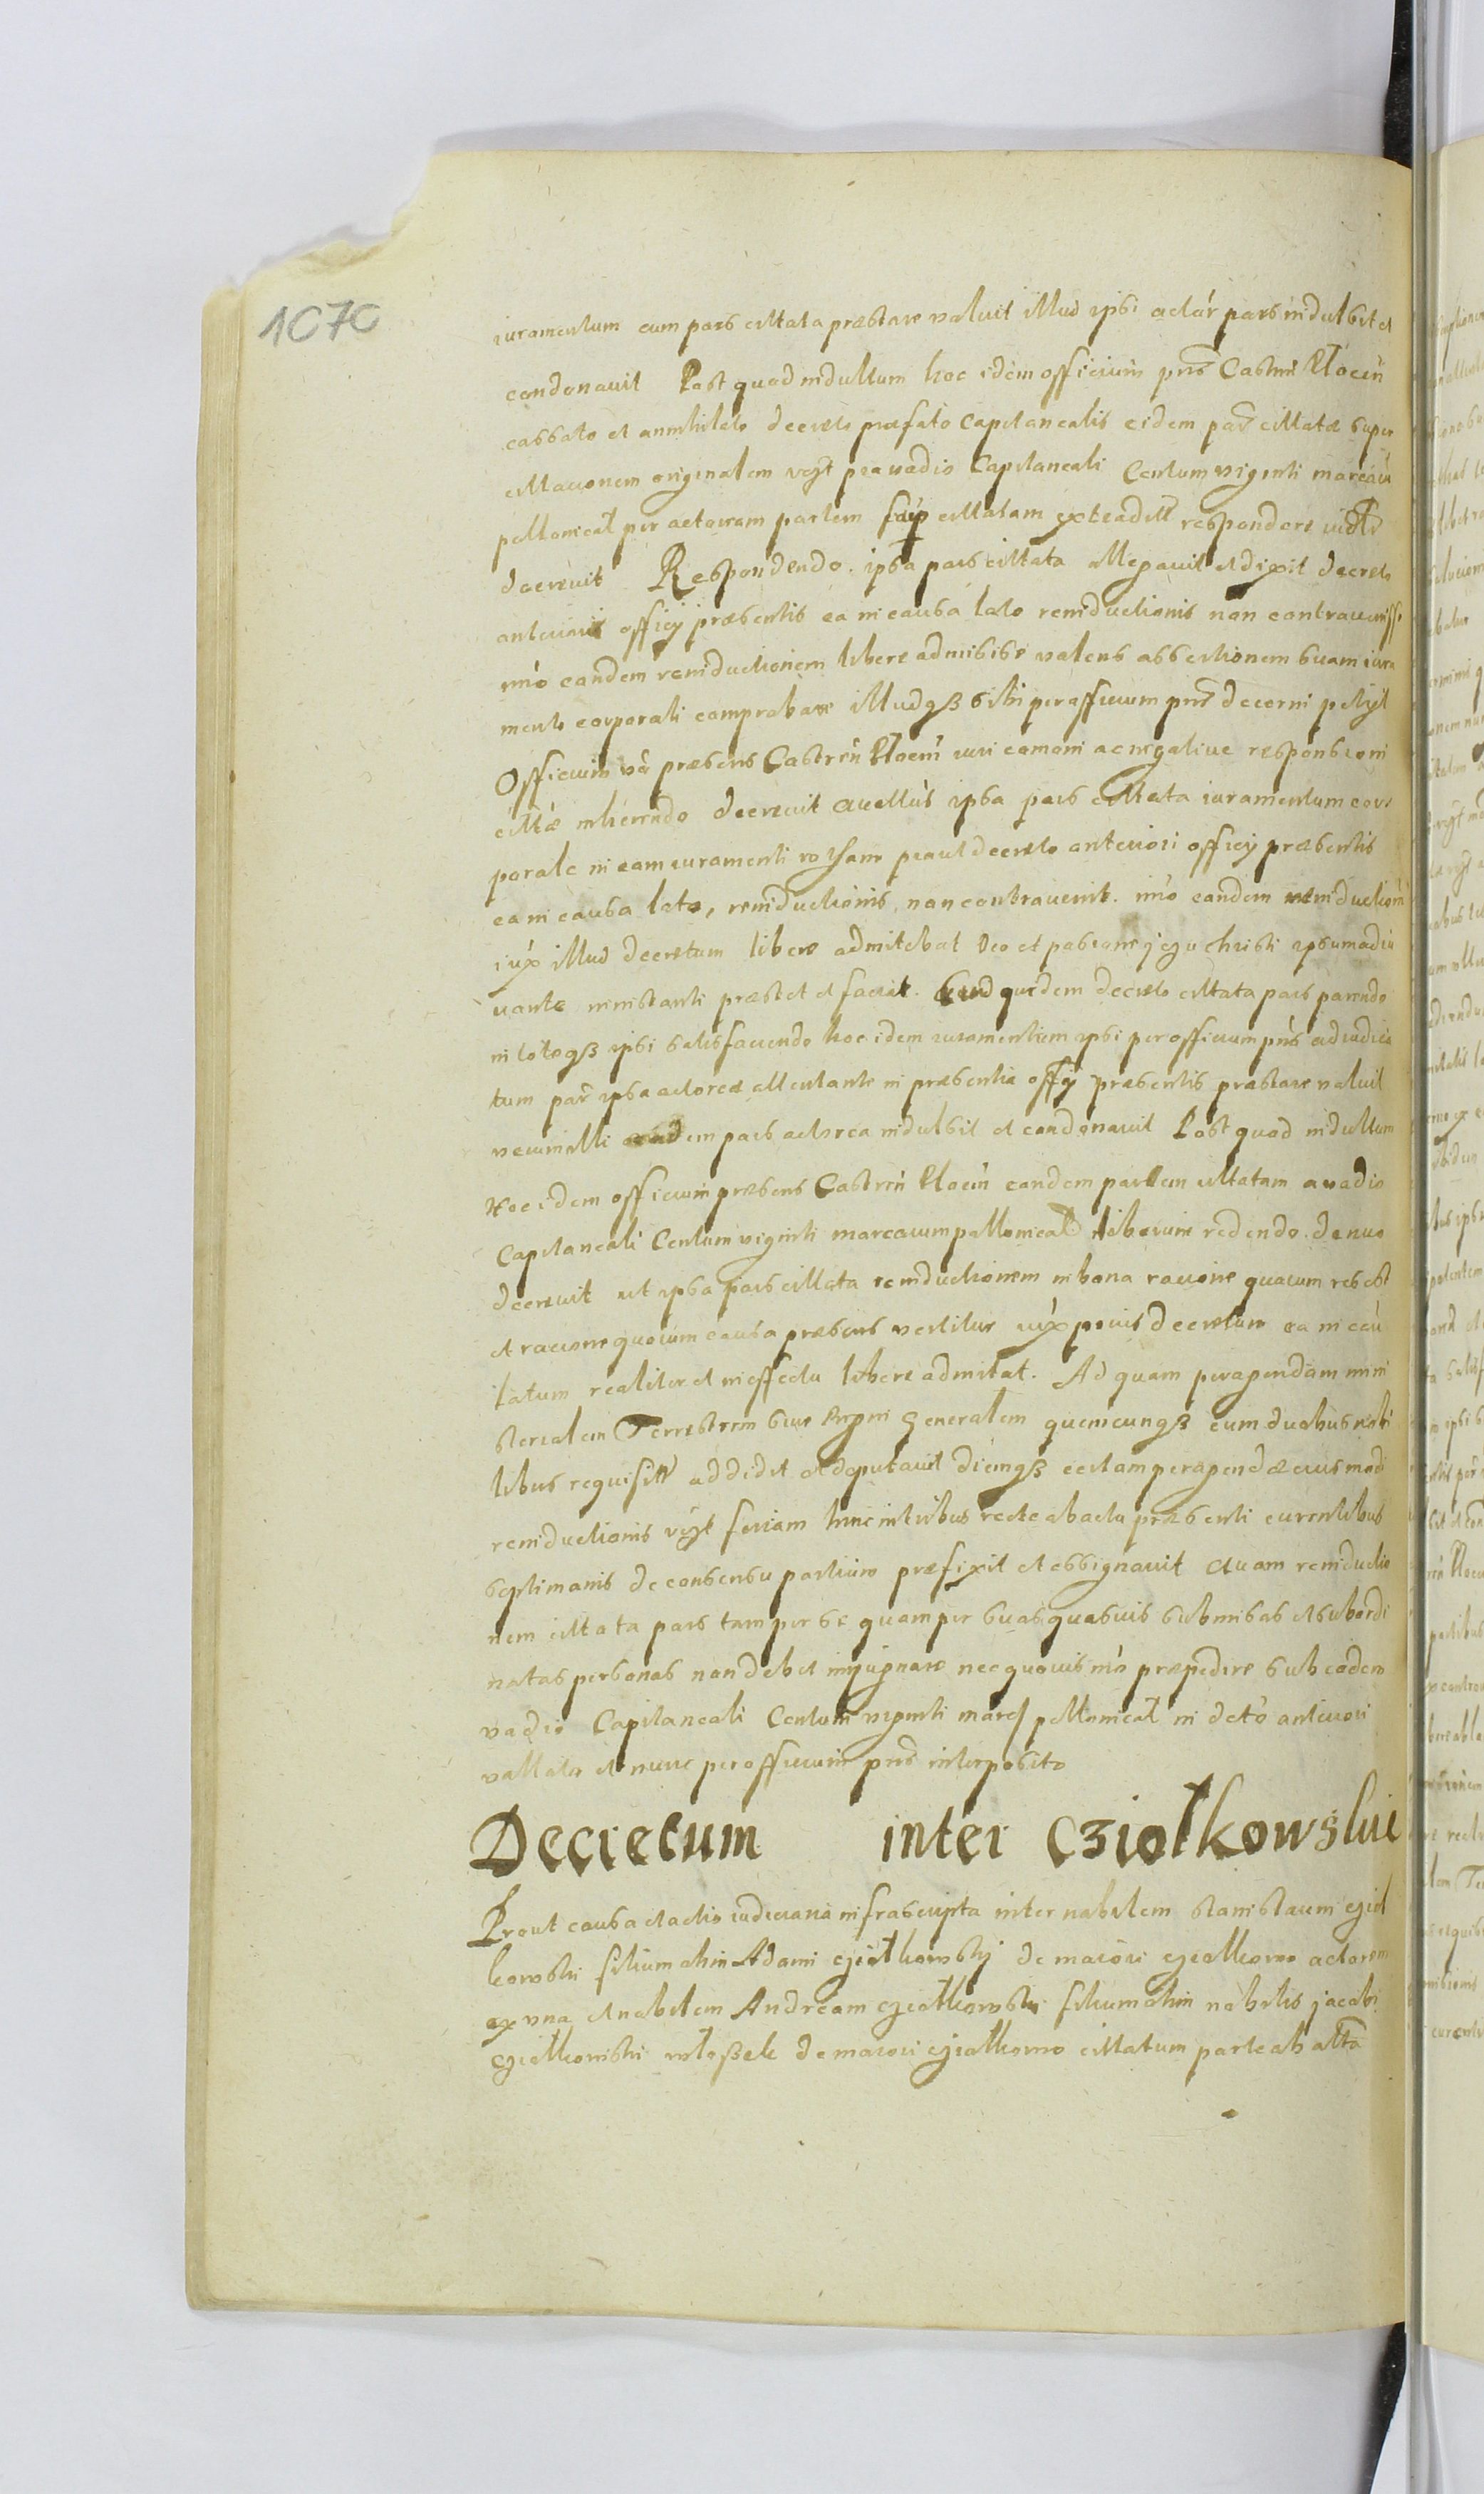 1070
iuramentum cum pars cittata præstare voluit illud ipsi actár pars indulsit et
condonavit Post quod indultum hoc idem officium pñs Castreñ Płoceń
cassato et annihilato decreto præfato Capitanealis eidem pař cittatæ super
cittationem originalem vigt pro vadio Capitaneali Centum viginti marcaru
pollonicał per actoream partem cittatam extraditt respondere
decrevit Respondendo ipsa pars cittata allegavit et dixit decreto
anteriori officij præsentis ea in causa lato reinductionis non contravenisse
imo eandem reinductionem libere admisisse volens assertionem suam iura
mento corporali comprobare illudqß sibi per officium pñs decerni petijt
Officium vo præsens Castreń Płoceń iuri comoni ac negativæ responsioni
cittæ inherendo decrevit quattus ipsa pars cittata iuramentum cor
porale in eam iuramenti rotham prout decreto anteriori officij præsentis
ea in causa lato, reinductionis non contravenit. imo eandem reinductionem
iux illud decretum libere admitebat Deo et passione jezu christi ipsum adiu
vante ministanti præstet et faciat. quidem decreto cittata pars parendo
in totoqß ipsi satisfaciendo hoc idem iuramentum ipsi per officium pñs adiudica
tum pař ipsa actorea attentante in præsentia offij præsentis præstare voluit
verum illi eadem pars actorea indulsit et condonavit Post quod indultum
Hoc idem officium præsens Castreń Płoceń eandem partem cittatam a vadio
Capitaneali Centum viginti marcarum pollonicał liberum redendo denuo
decrevit ut ipsa pars cittata reinductionem in bona ratione quarum res est
et ratione quorum causa præsens vertitur iúx prius decretum ea in cau
latum realiter et in effectu libere admitat. Ad quam peragendam mini
sterialem Terrestrem sive Regni Generalem quemcunqß cum duobus nobi
libus requisitt addidit et deputavit diemqß certam peragendæ eius modi
reinductionis vigt feriam hinc in tribus recte ab actu præsenti currentibus
septimanis de consensu partium præfixit et assignavit Quam reinductio
nem cittata pars tam per se quam per suas quasvis submisas et subordi
natas personas non debet impugnare nec quovis mo præpedire sub eodem
vadio Capitaneali Centum viginti marcj pollonicał in deto anteriori
vallato et nunc per officium pñs interposito
Decretum inter Cziołkowskie
Prout causa et actio iudiciaria infrascripta inter nobilem Stanislaum czioł
kowski filium olim Adami cziołkowskj de maiori cziołkowo actorem
ex una et nobilem Andream cziołkowski filium olim nobilis jacobi
cziołkowski włoßek de maiori cziołkowo cittatum parte ab altra